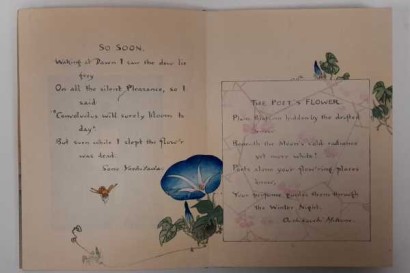 SO SOON.
Waking at Dawn I saw the dew lie
grey
On all the silent Pleasance, so I
said
"Convolvulus will surely bloom to
day!"
But even while I slept the flow'r
was dead.
Sone
THE POET'S FLOWER
Plum Blossom hidden by the drifted
Beneath the bloom's cold radiance
yet more white!
Poets alone your flow'ring-places
know,
Your perfume guides them through
the Winter Night.